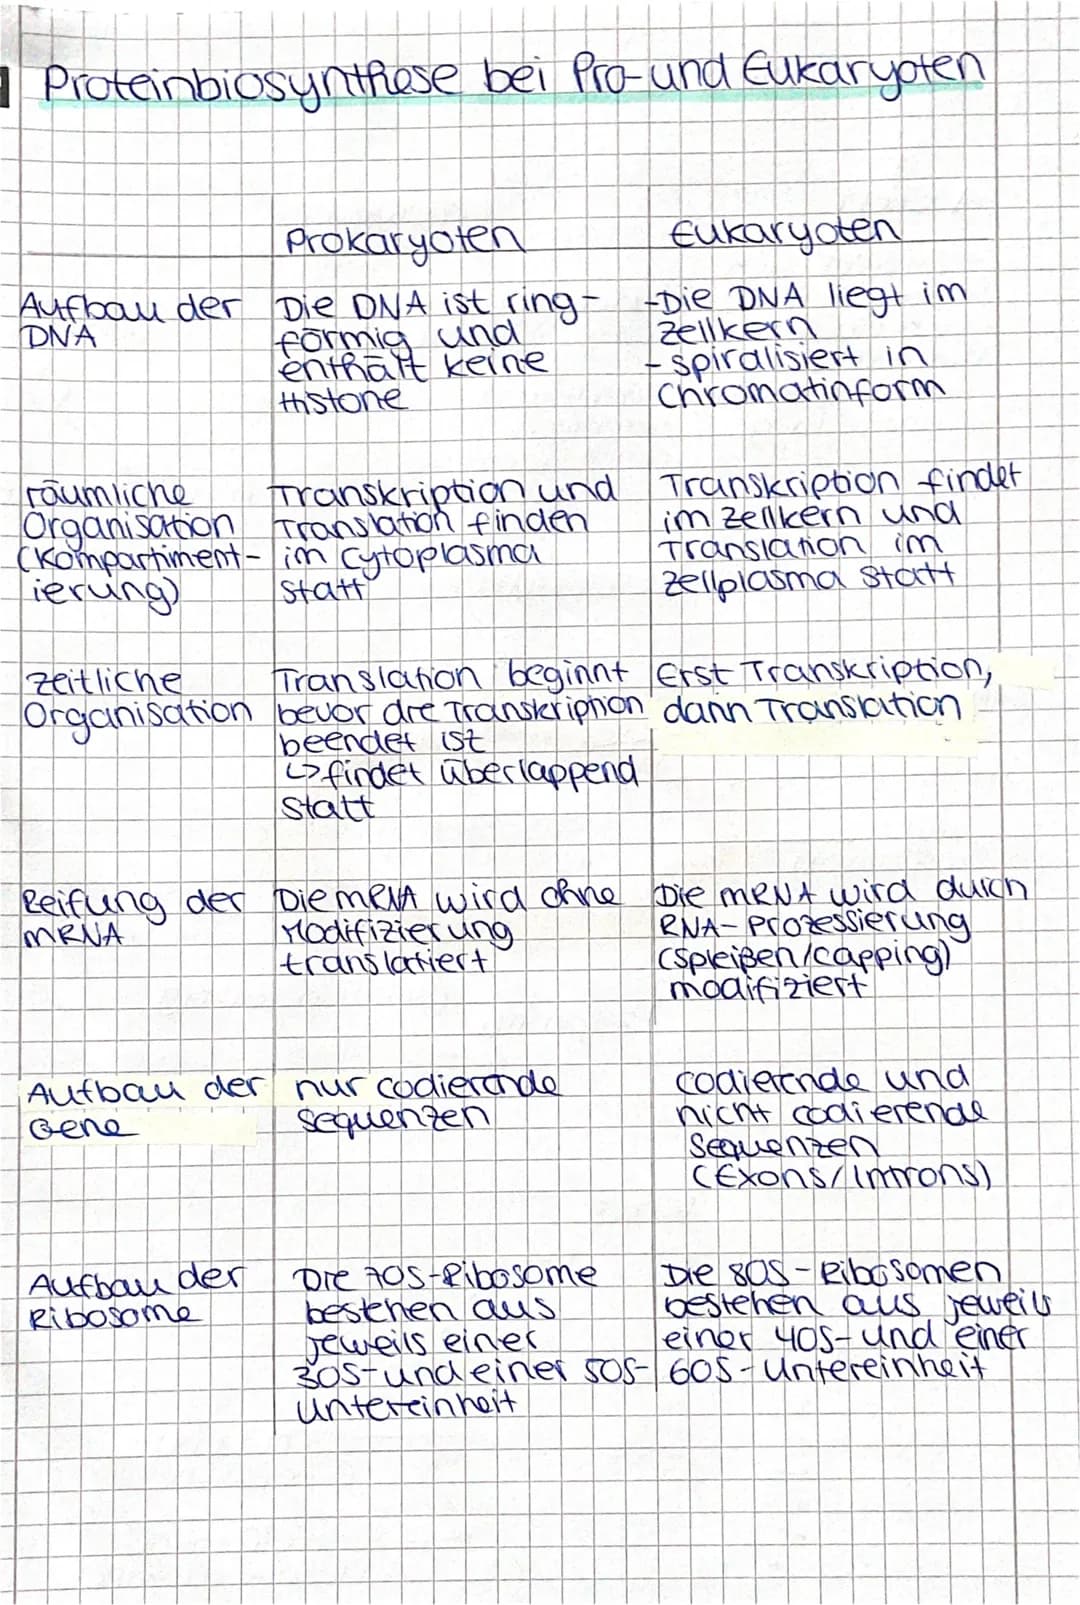 Proteinbiosynthese bei Pro- und Eukaryoten
Prokaryoten
Eukaryoten
Aufbau der
DNA
Die DNA ist ring-
förmig und
enthält keine
Histone
-Die DNA liegt im
Zellkern
- spiralisiert in
Chromatinform
räumliche
Organisation
(Kompartiment-
ierung)
Transkription und
Translation finden
im Cytoplasma
statt
Transkription findet
im Zellkern und
Translation im
Zellplasma statt
zeitliche
Organisation
Translation beginnt
bevor die Transkription
beendet ist
↳ findet überlappend
statt
Erst Transkription,
dann Translation
Reifung der
mRNA
Die mRNA wird ohne
Modifizierung
translatiert
Die mRNA wird durch
RNA-Prozessierung
(Spleißen/Capping)
modifiziert
Aufbau der
Gene
nur codierende
Sequenzen
codierende und
nicht codierende
Sequenzen
(Exons/Introns)
Aufbau der
Ribosome
Die 70S-Ribosome
bestehen aus
jeweils einer
30S- und einer 50S-
Untereinheit
Die 80S-Ribosomen
bestehen aus jeweils
einer 40S- und einer
60S-Untereinheit